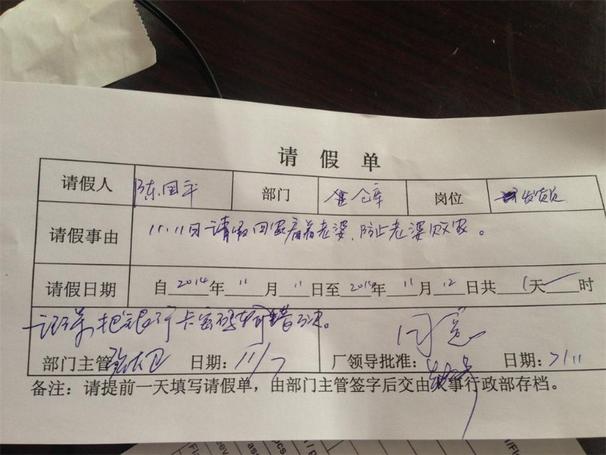 请假单
请假人 陈国平 部门 仓库 岗位 发货员
请假事由 11.11日请假回家看着老婆、防止老婆败家。
请假日期 自2014年11月11日至2014年11月12日共1天 时
记录 把银行卡密码 错
同意
部门主管 日期:11/7 厂领导批准: 日期:7/11
备注:请提前一天填写请假单,由部门主管签字后交由人事行政部存档。